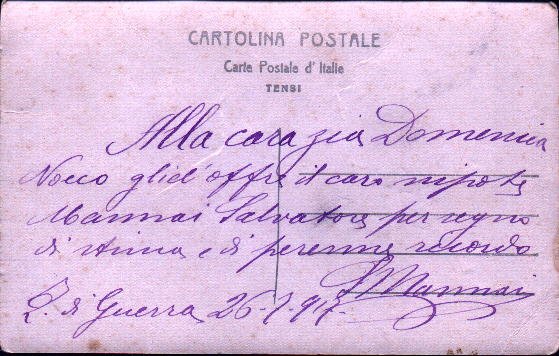 CARTOLINA POSTALE
Carte Postale d' Italie
TENSI
Alla cara zia Domenica
Nocco gliel'offre il caro nipote
Mannai Salvatore per segno
di stima e di perenne ricordo
S Mannai
Z. di Guerra 26-7-917-